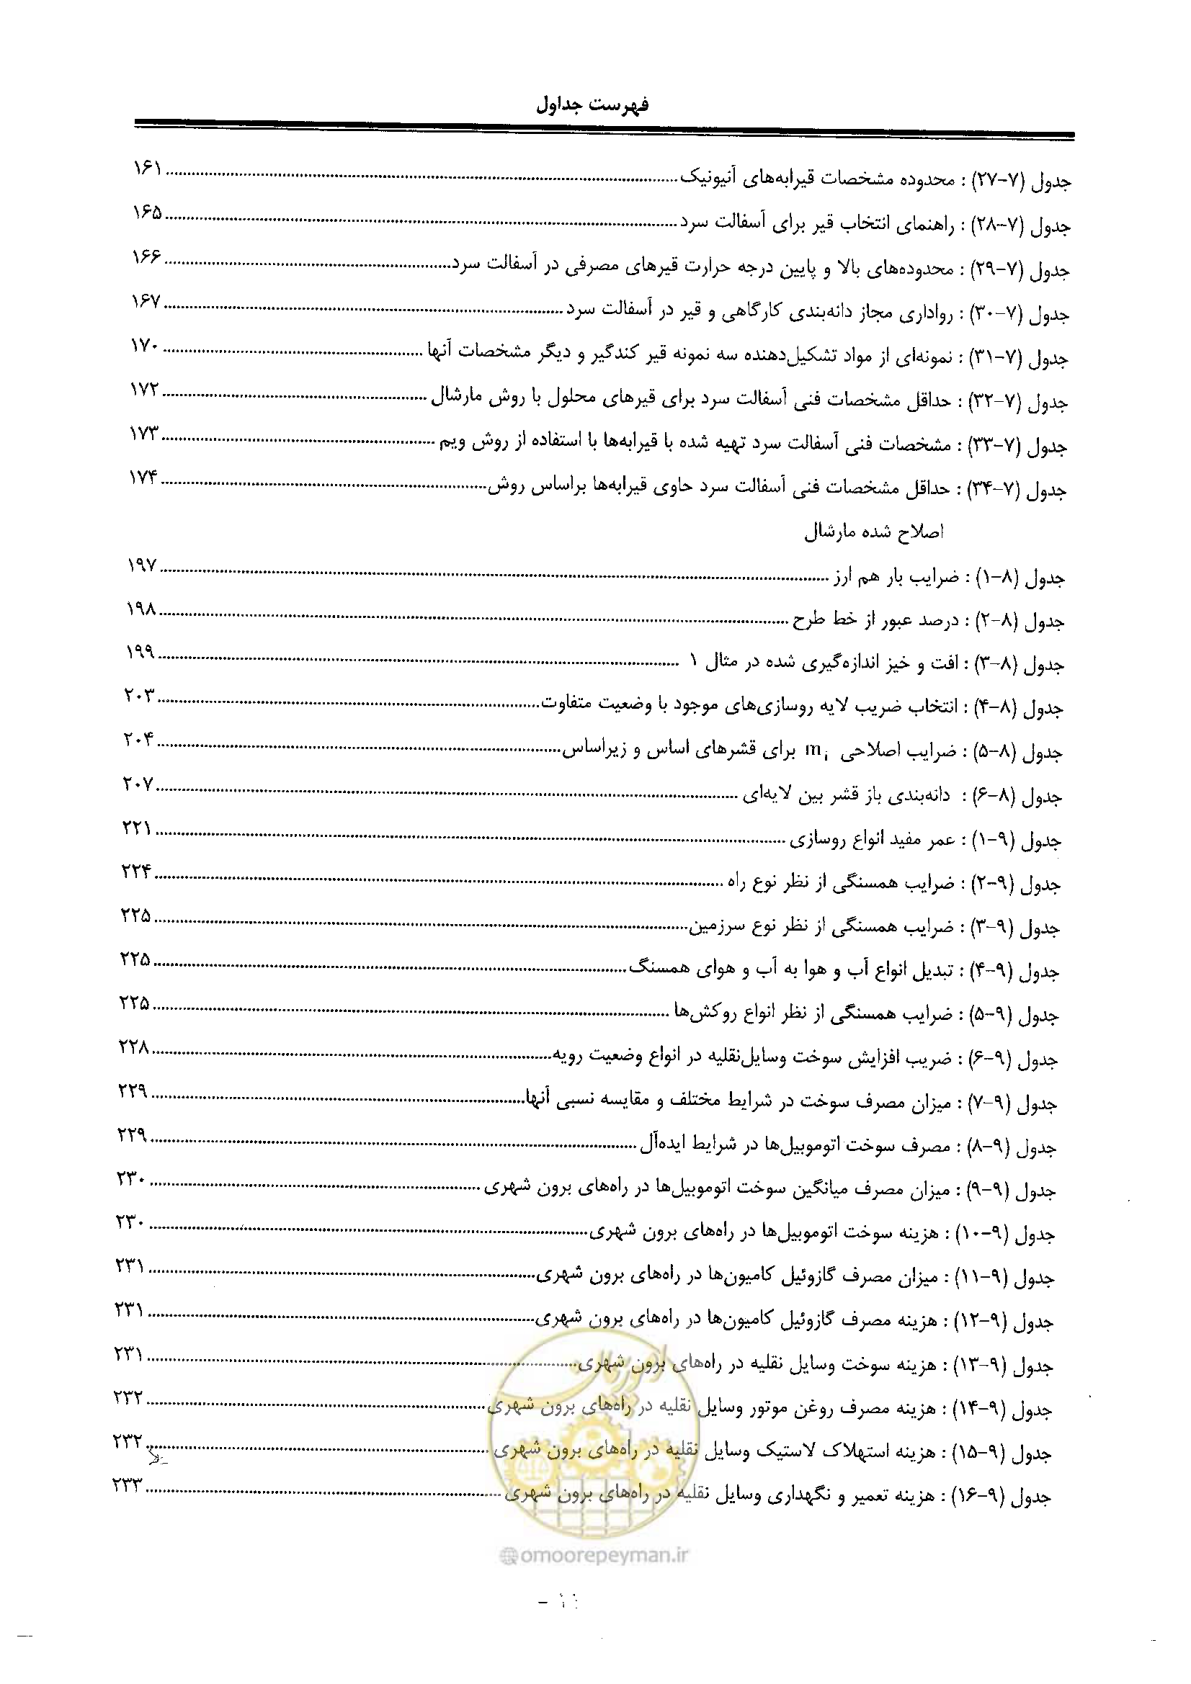 فهرست جداول
جدول (۷-۲۷) : محدوده مشخصات قیرابه‌های آنیونیک ۱۶۱
جدول (۷-۲۸) : راهنمای انتخاب قیر برای آسفالت سرد ۱۶۵
جدول (۷-۲۹) : محدوده‌های بالا و پایین درجه حرارت قیرهای مصرفی در آسفالت سرد ۱۶۶
جدول (۷-۳۰) : رواداری مجاز دانه‌بندی کارگاهی و قیر در آسفالت سرد ۱۶۷
جدول (۷-۳۱) : نمونه‌ای از مواد تشکیل‌دهنده سه نمونه قیر کندگیر و دیگر مشخصات آنها ۱۷۰
جدول (۷-۳۲) : حداقل مشخصات فنی آسفالت سرد برای قیرهای محلول با روش مارشال ۱۷۲
جدول (۷-۳۳) : مشخصات فنی آسفالت سرد تهیه شده با قیرابه‌ها با استفاده از روش ویم ۱۷۳
جدول (۷-۳۴) : حداقل مشخصات فنی آسفالت سرد حاوی قیرابه‌ها براساس روش ۱۷۴
اصلاح شده مارشال
جدول (۸-۱) : ضرایب بار هم ارز ۱۹۷
جدول (۸-۲) : درصد عبور از خط طرح ۱۹۸
جدول (۸-۳) : افت و خیز اندازه‌گیری شده در مثال ۱ ۱۹۹
جدول (۸-۴) : انتخاب ضریب لایه روسازی‌های موجود با وضعیت متفاوت ۲۰۳
جدول (۸-۵) : ضرایب اصلاحی mi برای قشرهای اساس و زیراساس ۲۰۴
جدول (۸-۶) : دانه‌بندی باز قشر بین لایه‌ای ۲۰۷
جدول (۹-۱) : عمر مفید انواع روسازی ۲۲۱
جدول (۹-۲) : ضرایب همسنگی از نظر نوع راه ۲۲۴
جدول (۹-۳) : ضرایب همسنگی از نظر نوع سرزمین ۲۲۵
جدول (۹-۴) : تبدیل انواع آب و هوا به آب و هوای همسنگ ۲۲۵
جدول (۹-۵) : ضرایب همسنگی از نظر انواع روکش‌ها ۲۲۵
جدول (۹-۶) : ضریب افزایش سوخت وسایل‌نقلیه در انواع وضعیت رویه ۲۲۸
جدول (۹-۷) : میزان مصرف سوخت در شرایط مختلف و مقایسه نسبی آنها ۲۲۹
جدول (۹-۸) : مصرف سوخت اتوموبیل‌ها در شرایط ایده‌آل ۲۲۹
جدول (۹-۹) : میزان مصرف میانگین سوخت اتوموبیل‌ها در راه‌های برون شهری ۲۳۰
جدول (۹-۱۰) : هزینه سوخت اتوموبیل‌ها در راه‌های برون شهری ۲۳۰
جدول (۹-۱۱) : میزان مصرف گازوئیل کامیون‌ها در راه‌های برون شهری ۲۳۱
جدول (۹-۱۲) : هزینه مصرف گازوئیل کامیون‌ها در راه‌های برون شهری ۲۳۱
جدول (۹-۱۳) : هزینه سوخت وسایل نقلیه در راه‌های برون شهری ۲۳۱
جدول (۹-۱۴) : هزینه مصرف روغن موتور وسایل نقلیه در راه‌های برون شهری ۲۳۲
جدول (۹-۱۵) : هزینه استهلاک لاستیک وسایل نقلیه در راه‌های برون شهری ۲۳۲
جدول (۹-۱۶) : هزینه تعمیر و نگهداری وسایل نقلیه در راه‌های برون شهری ۲۳۳
@omoorepeyman.ir